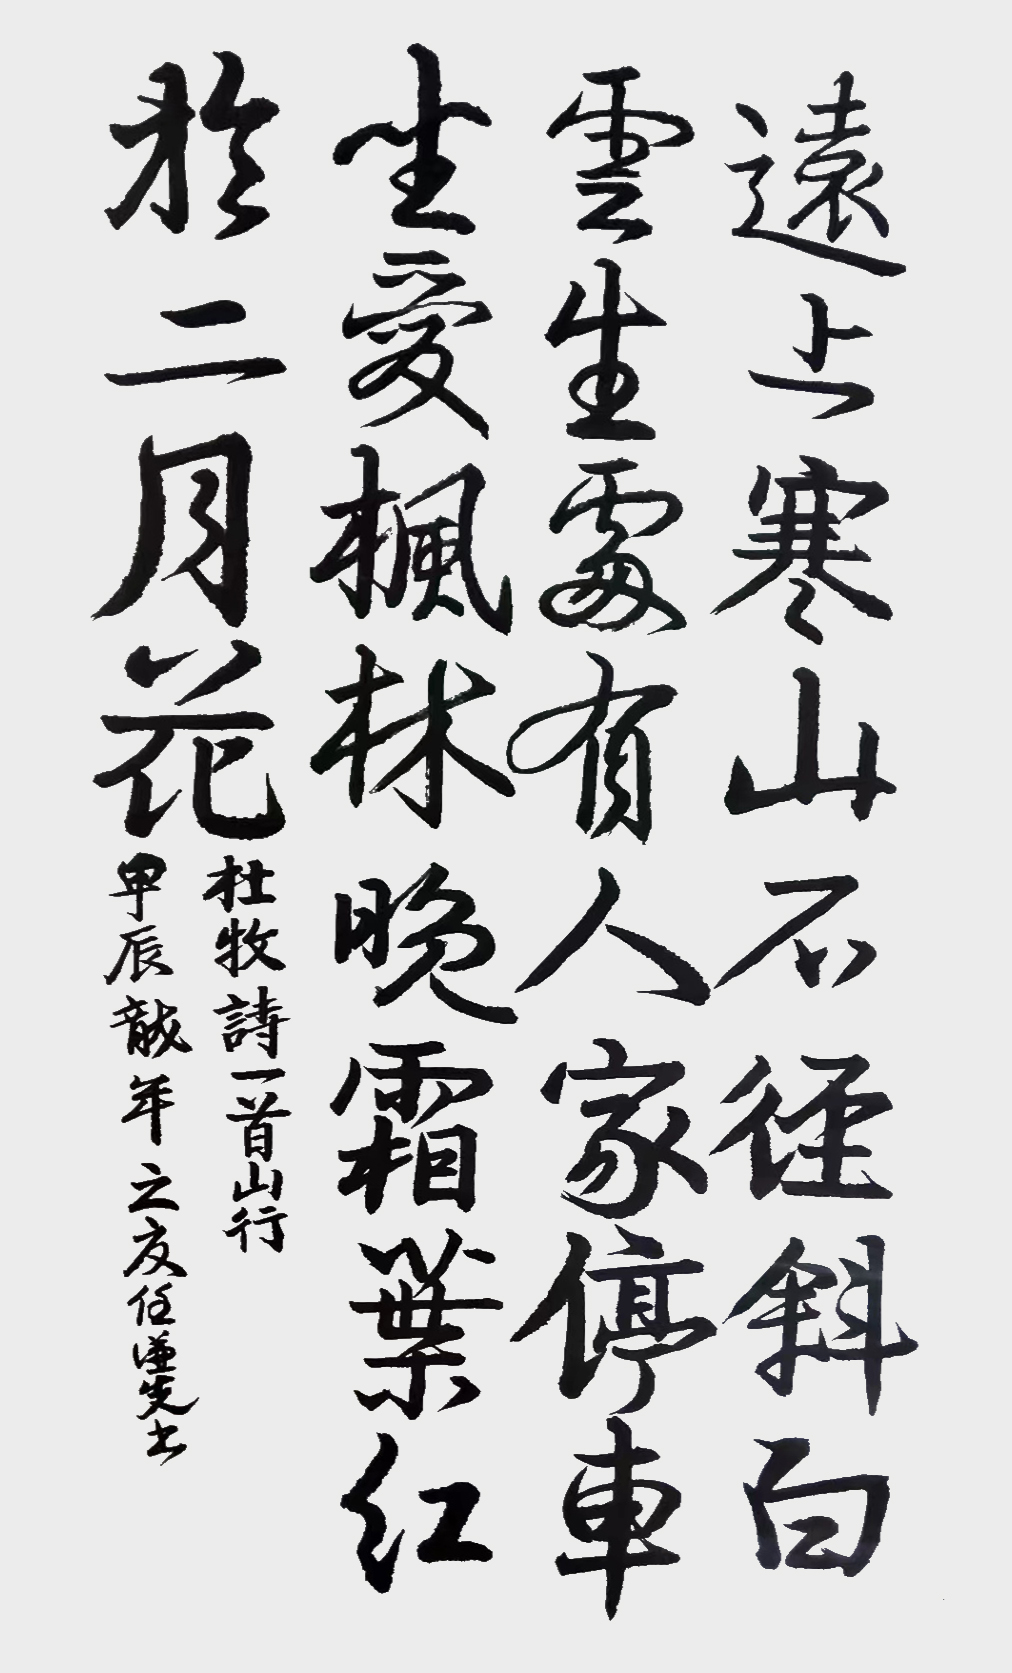 遠上寒山石徑斜白
雲生處有人家停車
坐愛楓林晚霜葉紅
於二月花
杜牧詩一首山行
甲辰龍年之夏任謙先書